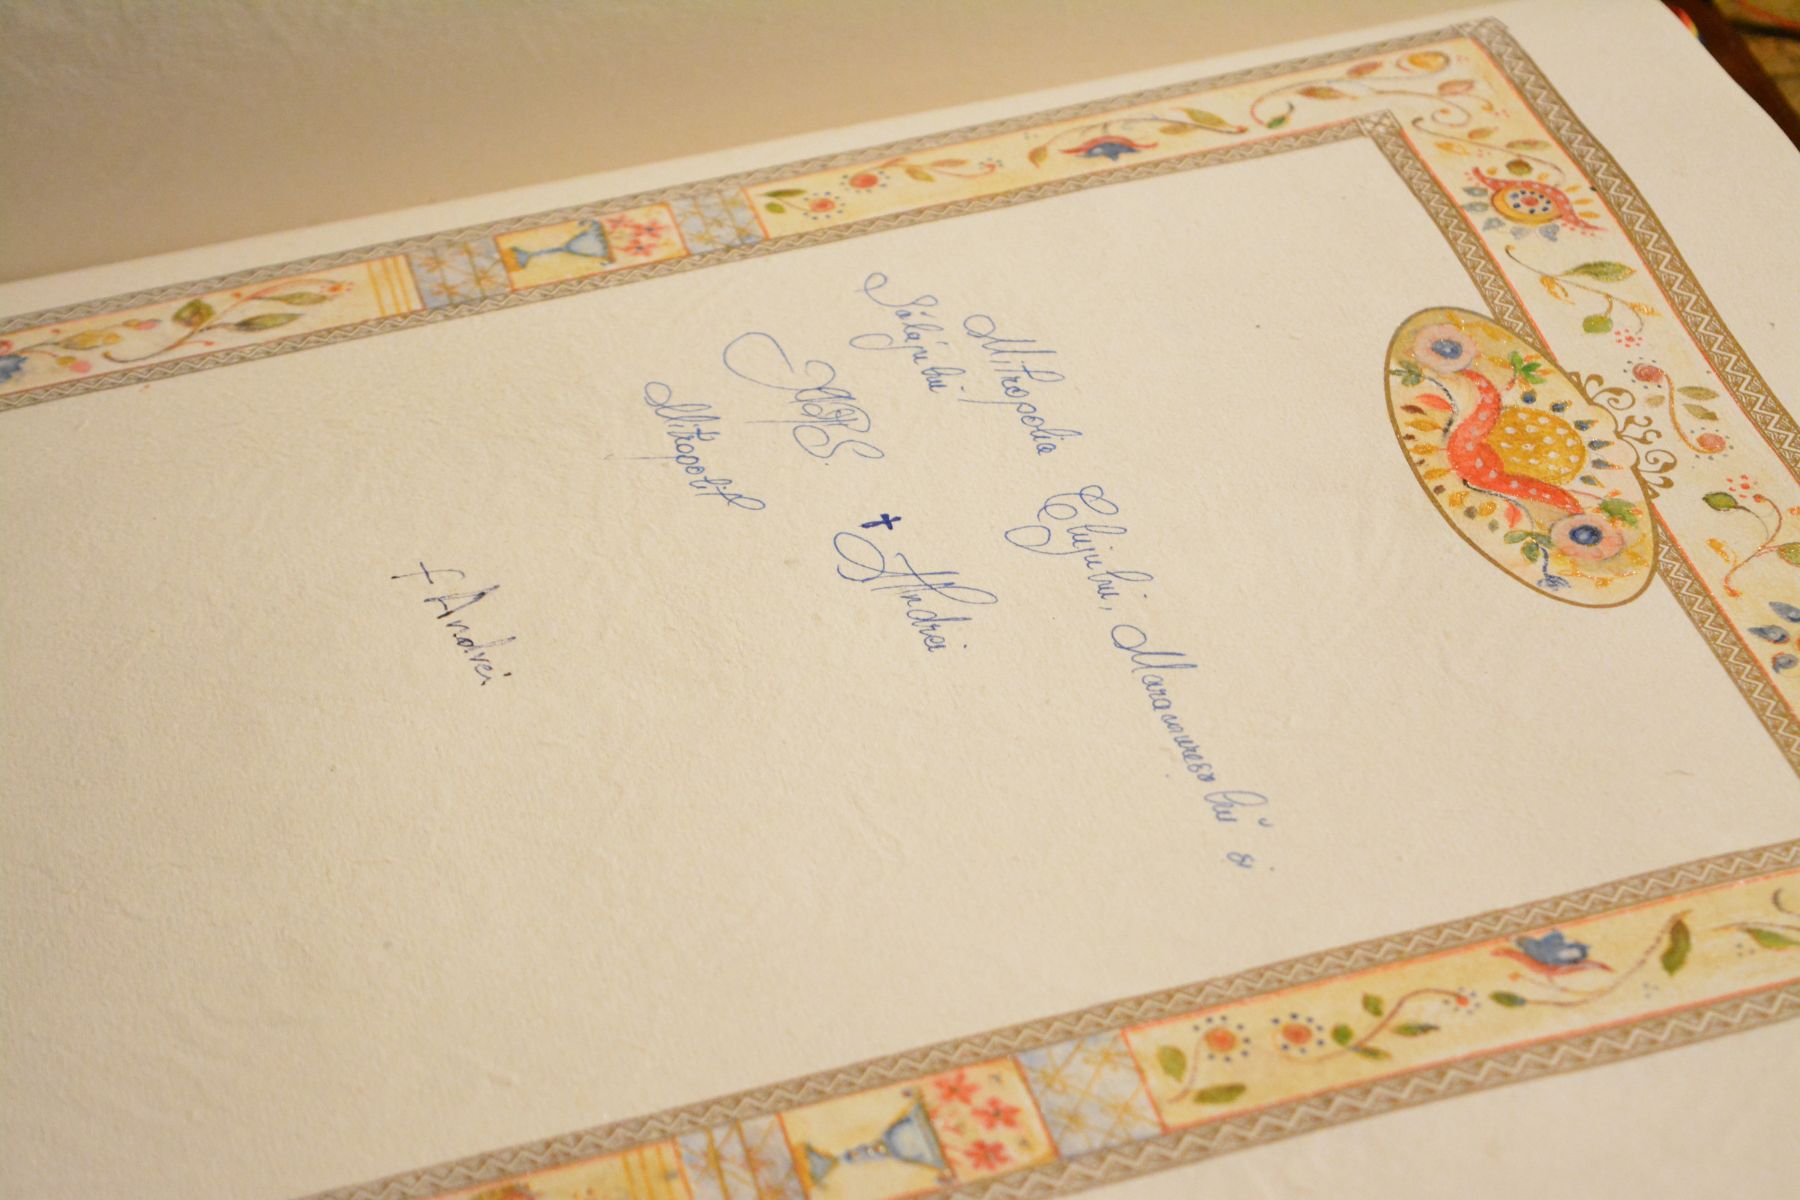 Mitropolia Clujului, Maramureșului și
Sălajului
ÎPS. † Andrei
Mitropolit
† Andrei